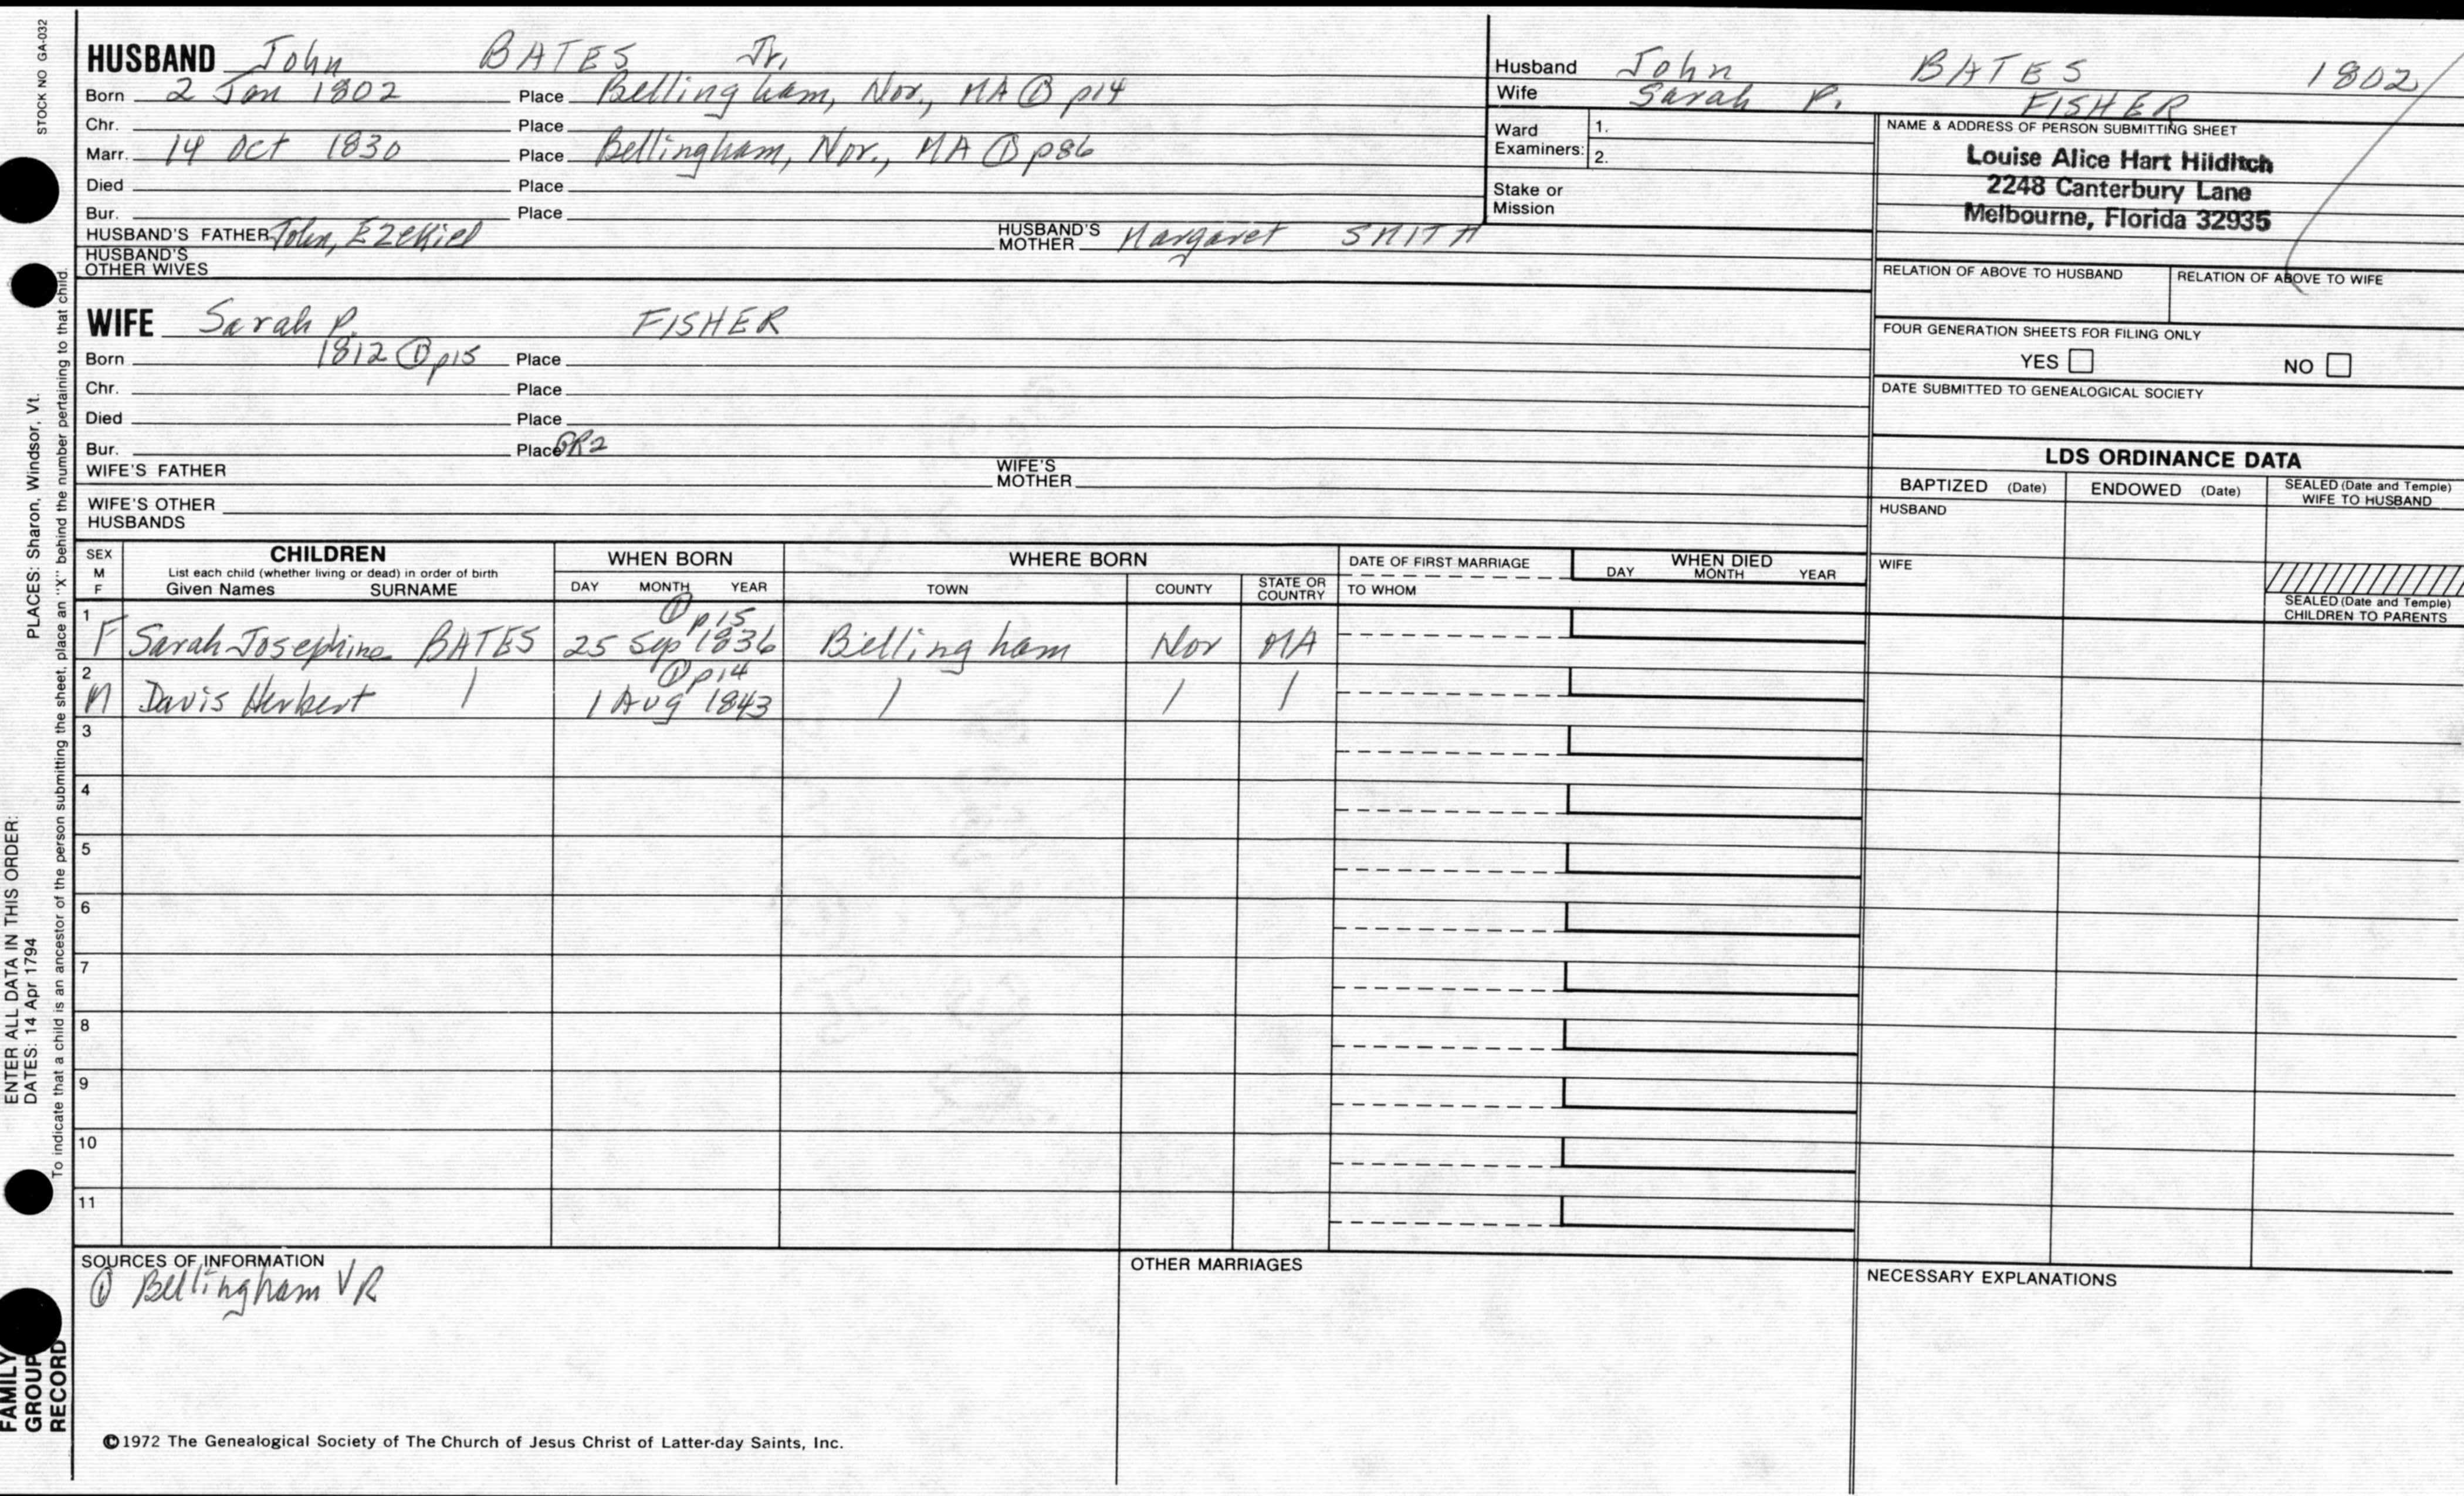 STOCK NO GA-032
HUSBAND John BATES Jr.
Born 2 Jan 1802 Place Bellingham, Nor., MA ① p14
Chr. Place
Marr. 14 Oct 1830 Place Bellingham, Nor., MA ① p86
Died Place
Bur. Place
HUSBAND'S FATHER John, Ezekiel HUSBAND'S MOTHER Margaret SMITH
HUSBAND'S OTHER WIVES
WIFE Sarah P. FISHER
Born 1812 ① p15 Place
Chr. Place
Died Place
Bur. Place GR2
WIFE'S FATHER WIFE'S MOTHER
WIFE'S OTHER HUSBANDS
Husband John BATES 1802
Wife Sarah P. FISHER
Ward Examiners: 1.
2.
Stake or Mission
NAME & ADDRESS OF PERSON SUBMITTING SHEET
Louise Alice Hart Hilditch
2248 Canterbury Lane
Melbourne, Florida 32935
RELATION OF ABOVE TO HUSBAND RELATION OF ABOVE TO WIFE
FOUR GENERATION SHEETS FOR FILING ONLY
YES NO
DATE SUBMITTED TO GENEALOGICAL SOCIETY
LDS ORDINANCE DATA
BAPTIZED (Date) ENDOWED (Date) SEALED (Date and Temple) WIFE TO HUSBAND
HUSBAND
WIFE
SEALED (Date and Temple) CHILDREN TO PARENTS
SEX M F CHILDREN WHEN BORN WHERE BORN DATE OF FIRST MARRIAGE WHEN DIED
List each child (whether living or dead) in order of birth
Given Names SURNAME DAY MONTH YEAR TOWN COUNTY STATE OR COUNTRY TO WHOM DAY MONTH YEAR
① p15
1 F Sarah Josephine BATES 25 Sep 1836 Bellingham Nor MA
① p14
2 M Davis Herbert / 1 Aug 1843 / / /
3
4
5
6
7
8
9
10
11
SOURCES OF INFORMATION
① Bellingham VR
OTHER MARRIAGES
NECESSARY EXPLANATIONS
©1972 The Genealogical Society of The Church of Jesus Christ of Latter-day Saints, Inc.
FAMILY GROUP RECORD
ENTER ALL DATA IN THIS ORDER:
DATES: 14 Apr 1794 PLACES: Sharon, Windsor, Vt.
To indicate that a child is an ancestor of the person submitting the sheet, place an "X" behind the number pertaining to that child.